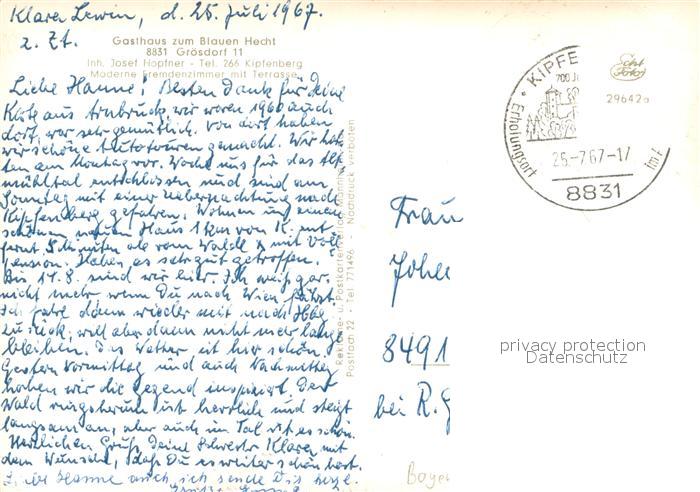 Klara Lewin, d. 25. Juli 1967.
z. Zt.
Gasthaus zum Blauen Hecht
8831 Grösdorf 11
Inh. Josef Hopfner - Tel. 266 Kipfenberg
Moderne Fremdenzimmer mit Terrasse
Liebe Hanne! Besten Dank für Deine
Karte aus Arnbruck, wir waren 1960 auch
dort, war sehr gemütlich. Von dort haben
wir schöne Autotouren gemacht. Wir hat-
ten am Montag vor. Woche uns für das Alt-
mühltal entschlossen und sind am
Sonntag mit einer Uebernachtung nach
Kipfenberg gefahren. Wohnen in einem
schönen neuen Haus 1 km von K. ent-
fernt, 5 Minuten ab vom Wald & mit Voll-
pension. Haben es sehr gut getroffen.
Bis 14.8. sind wir hier. Ich weiß gar
nicht mehr wann Du nach Wien fährst.
Ich fahre dann wieder mit nach Hbg
zurück, will aber dann nicht mehr lange
bleiben. Das Wetter ist hier schön.
Gestern Vormittag und auch Nachmittag
haben wir die Gegend inspiziert. Der
Wald ringsherum ist herrlich und steigt
langsam an, aber auch im Tal ist es schön.
Herzlichen Gruß Deine Schwester Klara mit
dem Wunsche, daß Du es weiter schön hast.
Liebe Hanne auch ich sende Dir herzl.
Reklame- u. Postkartenverlag
Postfach 22 - Tel. 771496 - Nachdruck verboten
KIPFE
700 J
Erholungsort
25.-7.67.-17
im A
8831
29642a
Frau
Joha
8491
bei R.G
Baye
privacy protection
Datenschutz